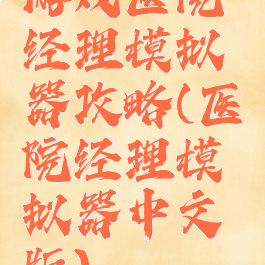 游戏医院
经理模拟
器攻略(医
院经理模
拟器中文
版)